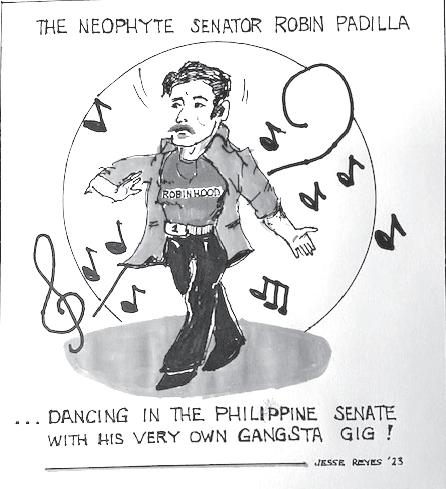 THE NEOPHYTE SENATOR ROBIN PADILLA
ROBINHOOD
1
... DANCING IN THE PHILIPPINE SENATE
WITH HIS VERY OWN GANGSTA GIG !
JESSE REYES '23